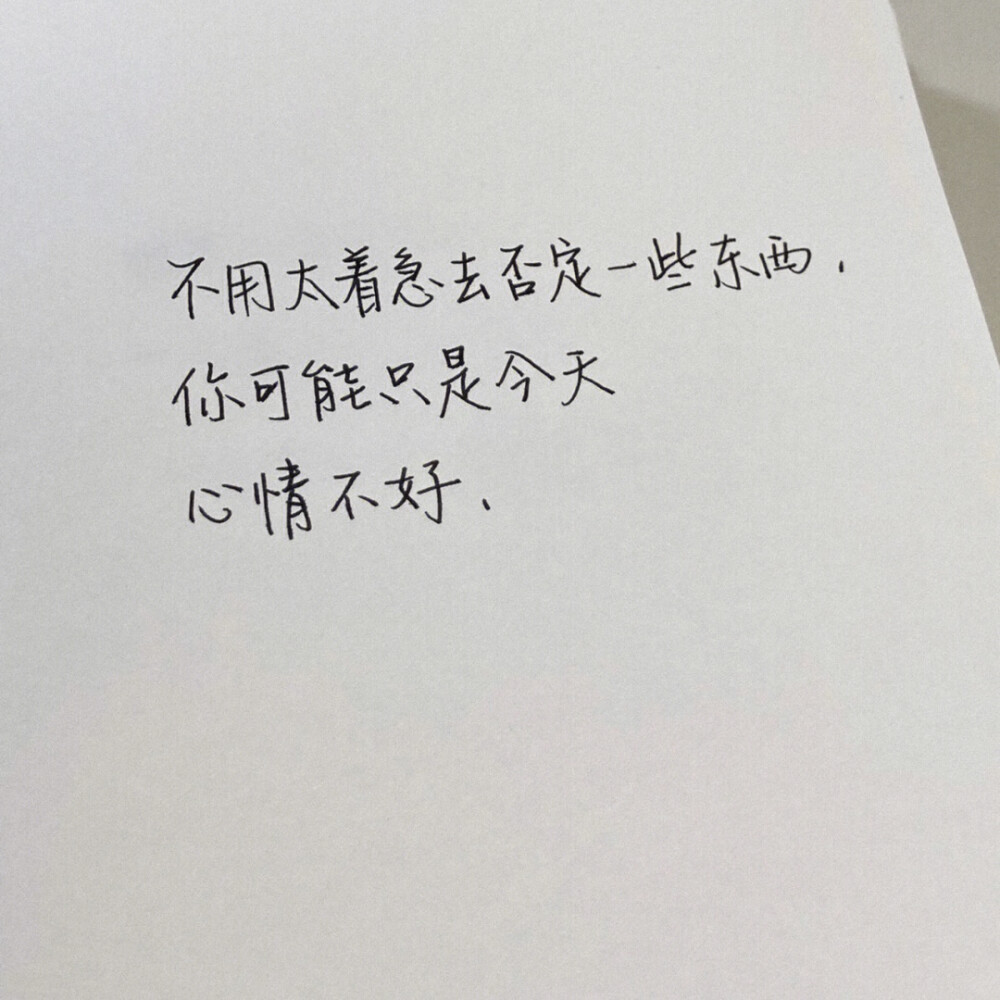 不用太着急去否定一些东西.
你可能只是今天
心情不好.